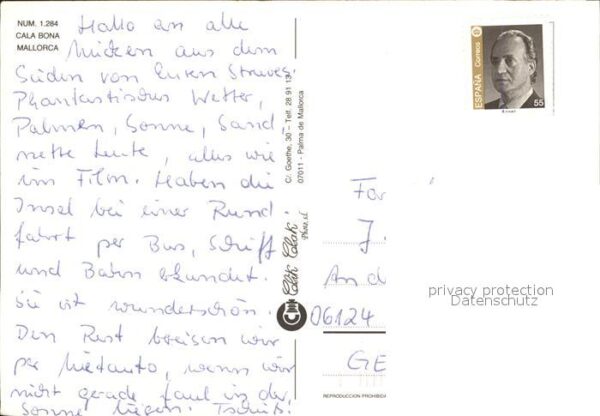 NUM. 1.284
CALA BONA
MALLORCA
Hallo an alle
aus dem
Süden von Euren
Phantastisches Wetter,
Palmen, Sonne, Sand
nette Leute, alles wie
im Film. Haben die
Insel bei einer Rund-
fahrt per Bus, Schiff
und Bahn erkundet.
Sie ist wunderschön.
Den Rest bereisen wir
per Mietauto, wenn wir
nicht gerade faul in der
Sonne liegen. Tschüß!
C/. Goethe, 30 – Telf. 28 91 13
07011 - Palma de Mallorca
Clik Clak
Photo, s.l.
ESPAÑA
Correos
55
For
J.
An d
06124
GE
privacy protection
Datenschutz
REPRODUCCION PROHIBIDA